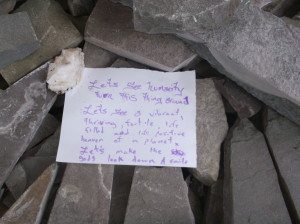 Let's see humanity
turn this thing around
Let's see a vibrant,
thriving, fertile, life
filled and life positive
heaven of a planet.
Let's make the
gods look down & smile